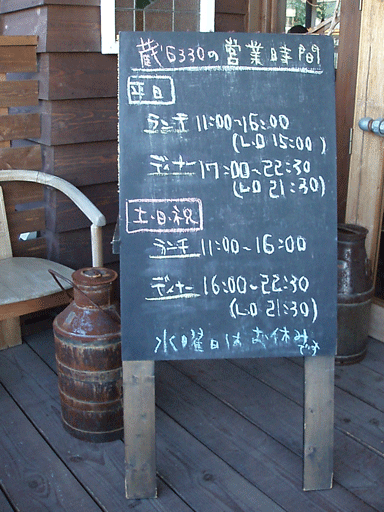 蔵'S330の営業時間
平日
ランチ 11:00~16:00
(L.O 15:00)
ディナー 17:00~22:30
(L.O 21:30)
土・日・祝
ランチ 11:00~16:00
ディナー 16:00~22:30
(L.O 21:30)
水曜日はお休みです